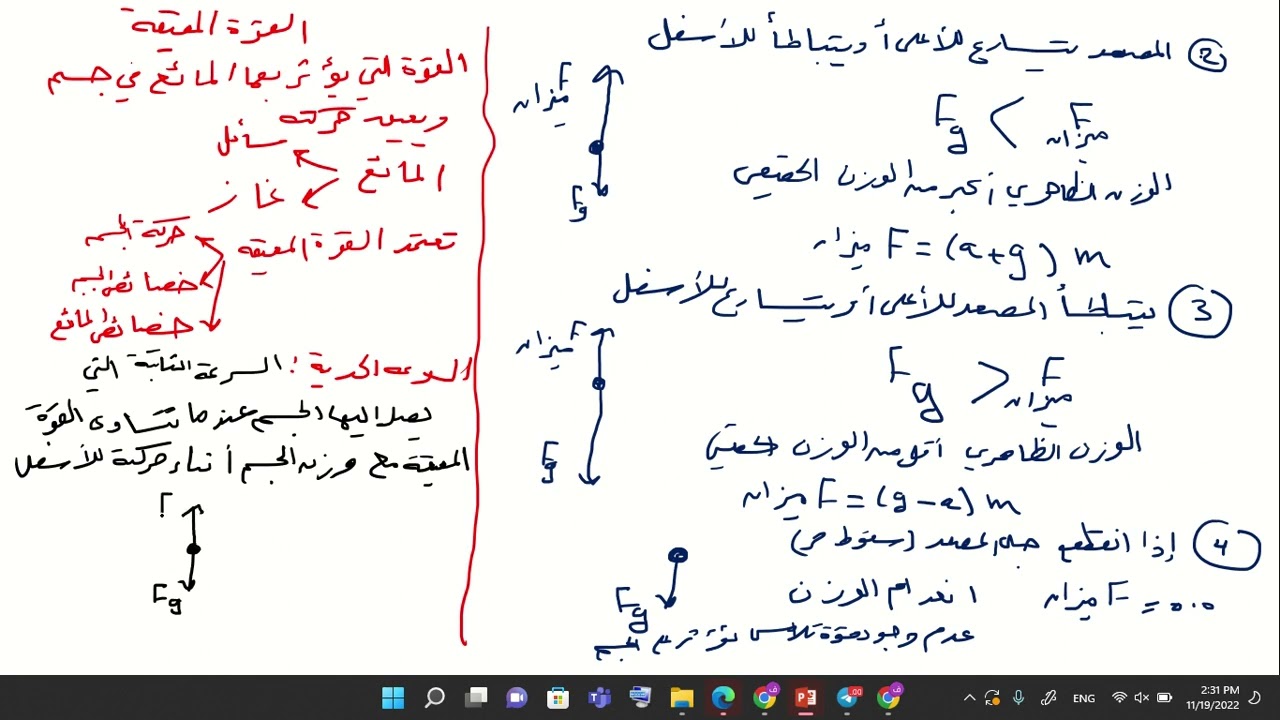 ② المصعد يتسارع للأعلى أو يتباطأ للأسفل
F ميزان
Fg
Fg < F ميزان
الوزن الظاهري أكبر من الوزن الحقيقي
F ميزان = (a+g) m
③ يتباطأ المصعد للأعلى أو يتسارع للأسفل
F ميزان
Fg
Fg > F ميزان
الوزن الظاهري أقل من الوزن الحقيقي
F ميزان = (g-a) m
④ إذا انقطع حبل المصعد (سقوط حر)
F ميزان = 0.0
انعدام الوزن
Fg
عدم وجود قوة تلامس تؤثر على الجسم
القوة المعيقة
القوة التي يؤثر بها المائع في جسم
ويعيق حركته
المائع
سائل
غاز
تعتمد القوة المعيقة
حركة الجسم
خصائص الجسم
خصائص المائع
السرعة الحدية : السرعة الثابتة التي
يصل إليها الجسم عندما تتساوى القوة
المعيقة مع وزن الجسم أثناء حركته للأسفل
Fg
ENG
2:31 PM
11/19/2022